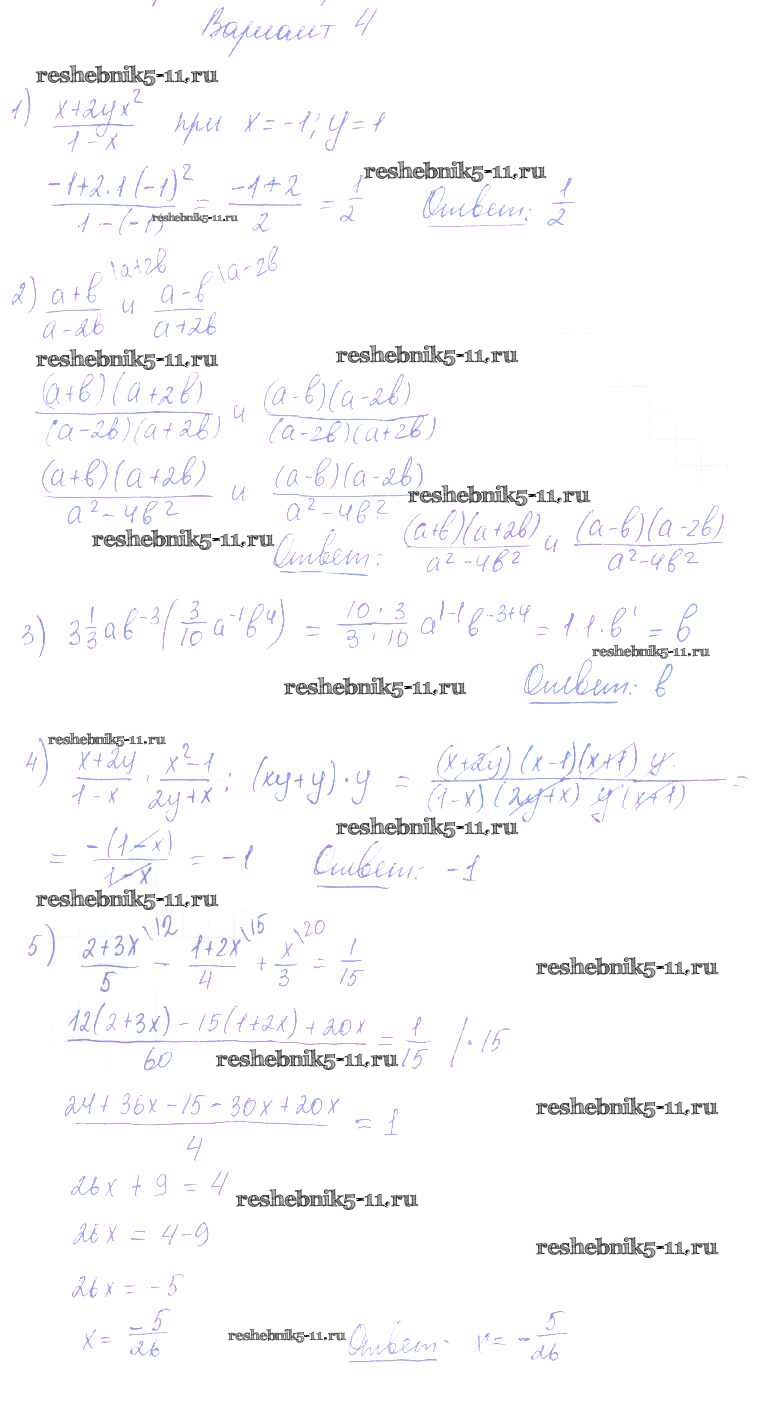 Вариант 4
reshebnik5-11.ru
1) (x+2yx²)/(1-x) при x=-1; y=1
reshebnik5-11.ru
(-1+2·1(-1)²)/(1-(-1)) = (-1+2)/2 = 1/2 Ответ: 1/2
reshebnik5-11.ru
2) (a+b)/(a-2b) \a+2b и (a-b)/(a+2b) \a-2b
reshebnik5-11.ru reshebnik5-11.ru
((a+b)(a+2b))/((a-2b)(a+2b)) и ((a-b)(a-2b))/((a-2b)(a+2b))
((a+b)(a+2b))/(a²-4b²) и ((a-b)(a-2b))/(a²-4b²)
reshebnik5-11.ru
reshebnik5-11.ru
Ответ: ((a+b)(a+2b))/(a²-4b²) и ((a-b)(a-2b))/(a²-4b²)
3) 3 1/3 ab⁻³(3/10 a⁻¹b⁴) = (10·3)/(3·10) a¹⁻¹b⁻³⁺⁴ = 1·1·b¹ = b
reshebnik5-11.ru
reshebnik5-11.ru Ответ: b
reshebnik5-11.ru
4) (x+2y)/(1-x) · (x²-1)/(2y+x) : (xy+y)·y = ((x+2y)(x-1)(x+1)y)/((1-x)(2y+x)y(x+1)) =
reshebnik5-11.ru
= (-(1-x))/(1-x) = -1 Ответ: -1
reshebnik5-11.ru
5) (2+3x)/5 \12 - (1+2x)/4 \15 + x/3 \20 = 1/15
reshebnik5-11.ru
(12(2+3x)-15(1+2x)+20x)/60 = 1/15 /·15
reshebnik5-11.ru
(24+36x-15-30x+20x)/4 = 1
reshebnik5-11.ru
26x+9=4
reshebnik5-11.ru
26x=4-9
reshebnik5-11.ru
26x=-5
x= -5/26 reshebnik5-11.ru Ответ: x=-5/26